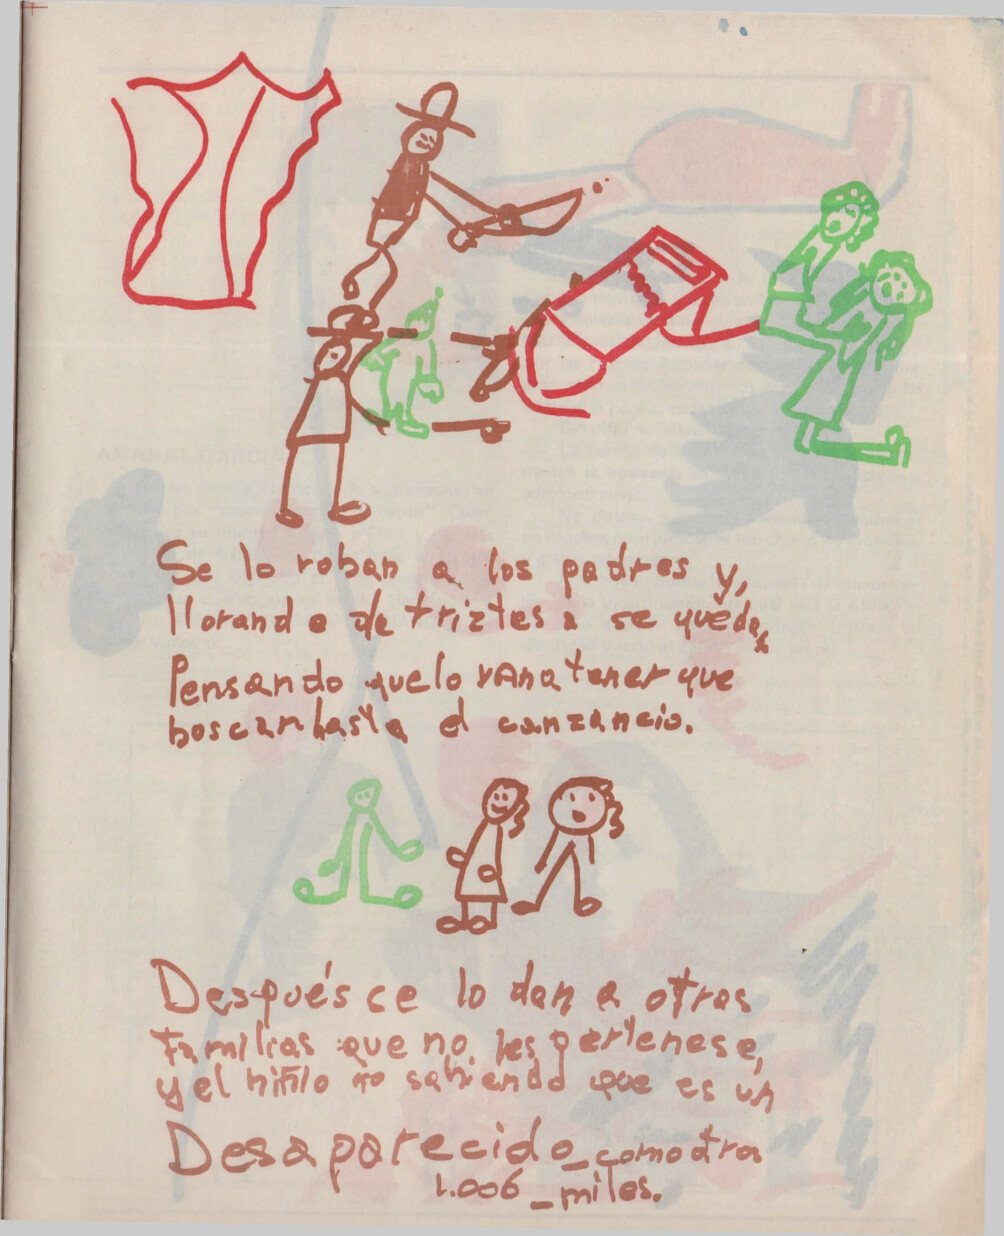 Se lo roban a los padres y,
llorando de triztesa se queda,
Pensando que lo van a tener que
boscar hasta el canzancio.
Después ce lo dan a otras
familias que no les pertenese,
y el niño no sabiendo que es un
Desaparecido_como otros
1.006_miles.